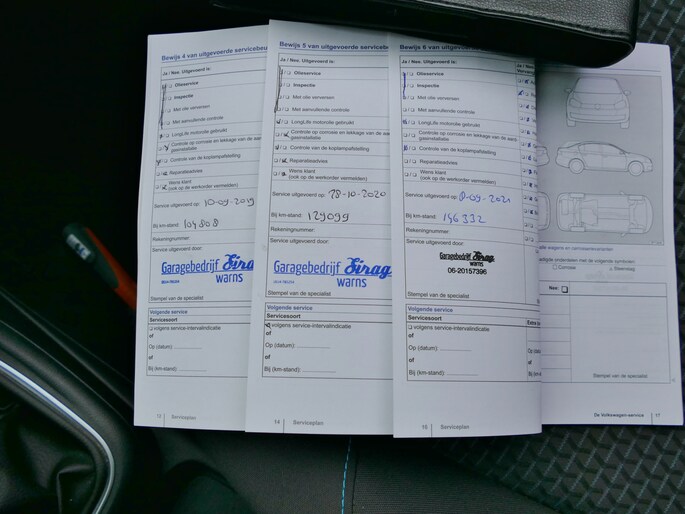 Bewijs 4 van uitgevoerde servicebeu
Ja / Nee. Uitgevoerd is:
Olieservice
Inspectie
Met olie verversen
Met aanvullende controle
LongLife motorolie gebruikt
Controle op corrosie en lekkage van de aan
Controle van de koplampafstelling
Reparatieadvies
Wens klant
(ook op de werkorder vermelden)
Service uitgevoerd op: 10-09-2019
Bij km-stand: 104808
Rekeningnummer:
Service uitgevoerd door:
Garagebedrijf Sirag
warns
Stempel van de specialist
Volgende service
Servicesoort
volgens service-intervalindicatie
of
Op (datum):
of
Bij (km-stand):
12 Serviceplan
Bewijs 5 van uitgevoerde serviceb
Ja / Nee. Uitgevoerd is:
Olieservice
Inspectie
Met olie verversen
Met aanvullende controle
LongLife motorolie gebruikt
Controle op corrosie en lekkage van de aan
Controle van de koplampafstelling
Reparatieadvies
Wens klant
(ook op de werkorder vermelden)
Service uitgevoerd op: 28-10-2020
Bij km-stand: 129099
Rekeningnummer:
Service uitgevoerd door:
Garagebedrijf Sirag
warns
Stempel van de specialist
Volgende service
Servicesoort
volgens service-intervalindicatie
of
Op (datum):
of
Bij (km-stand):
14 Serviceplan
Bewijs 6 van uitgevoerde
Ja / Nee. Uitgevoerd is:
Olieservice
Inspectie
Met olie verversen
Met aanvullende controle
LongLife motorolie gebruikt
Controle op corrosie en lekkage van de aan
Controle van de koplampafstelling
Reparatieadvies
Wens klant
(ook op de werkorder vermelden)
Service uitgevoerd op: 8-09-2021
Bij km-stand: 146332
Rekeningnummer:
Service uitgevoerd door:
Garagebedrijf Sirag
warns
06-20157396
Stempel van de specialist
Volgende service
Servicesoort
volgens service-intervalindicatie
of
Op (datum):
of
Bij (km-stand):
16 Serviceplan
Corrosie
Nee:
Stempel van de specialist
De Volkswagen-service 17